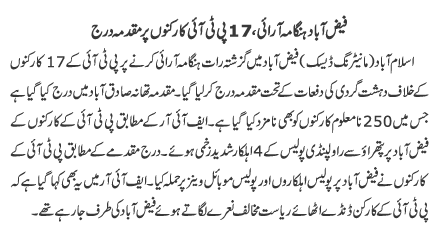 فیض آباد ہنگامہ آرائی، 17 پی ٹی آئی کارکنوں پر مقدمہ درج
اسلام آباد (مانیٹرنگ ڈیسک) فیض آباد میں گزشتہ رات ہنگامہ آرائی کرنے پر پی ٹی آئی کے 17 کارکنوں
کے خلاف دہشت گردی کی دفعات کے تحت مقدمہ درج کر لیا گیا۔ مقدمہ تھانہ صادق آباد میں درج کیا گیا ہے
جس میں 250 نامعلوم کارکنوں کو بھی نامزد کیا گیا ہے۔ ایف آئی آر کے مطابق پی ٹی آئی کے کارکنوں کے
فیض آباد پر پتھراؤ سے راولپنڈی پولیس کے 4 اہلکار شدید زخمی ہوئے۔ درج مقدمے کے مطابق پی ٹی آئی کے
کارکنوں نے فیض آباد پر پولیس اہلکاروں اور پولیس موبائل وینز پر حملہ کیا۔ ایف آئی آر میں یہ بھی کہا گیا ہے کہ
پی ٹی آئی کے کارکن ڈنڈے اٹھائے ریاست مخالف نعرے لگاتے ہوئے فیض آباد کی طرف جا رہے تھے۔